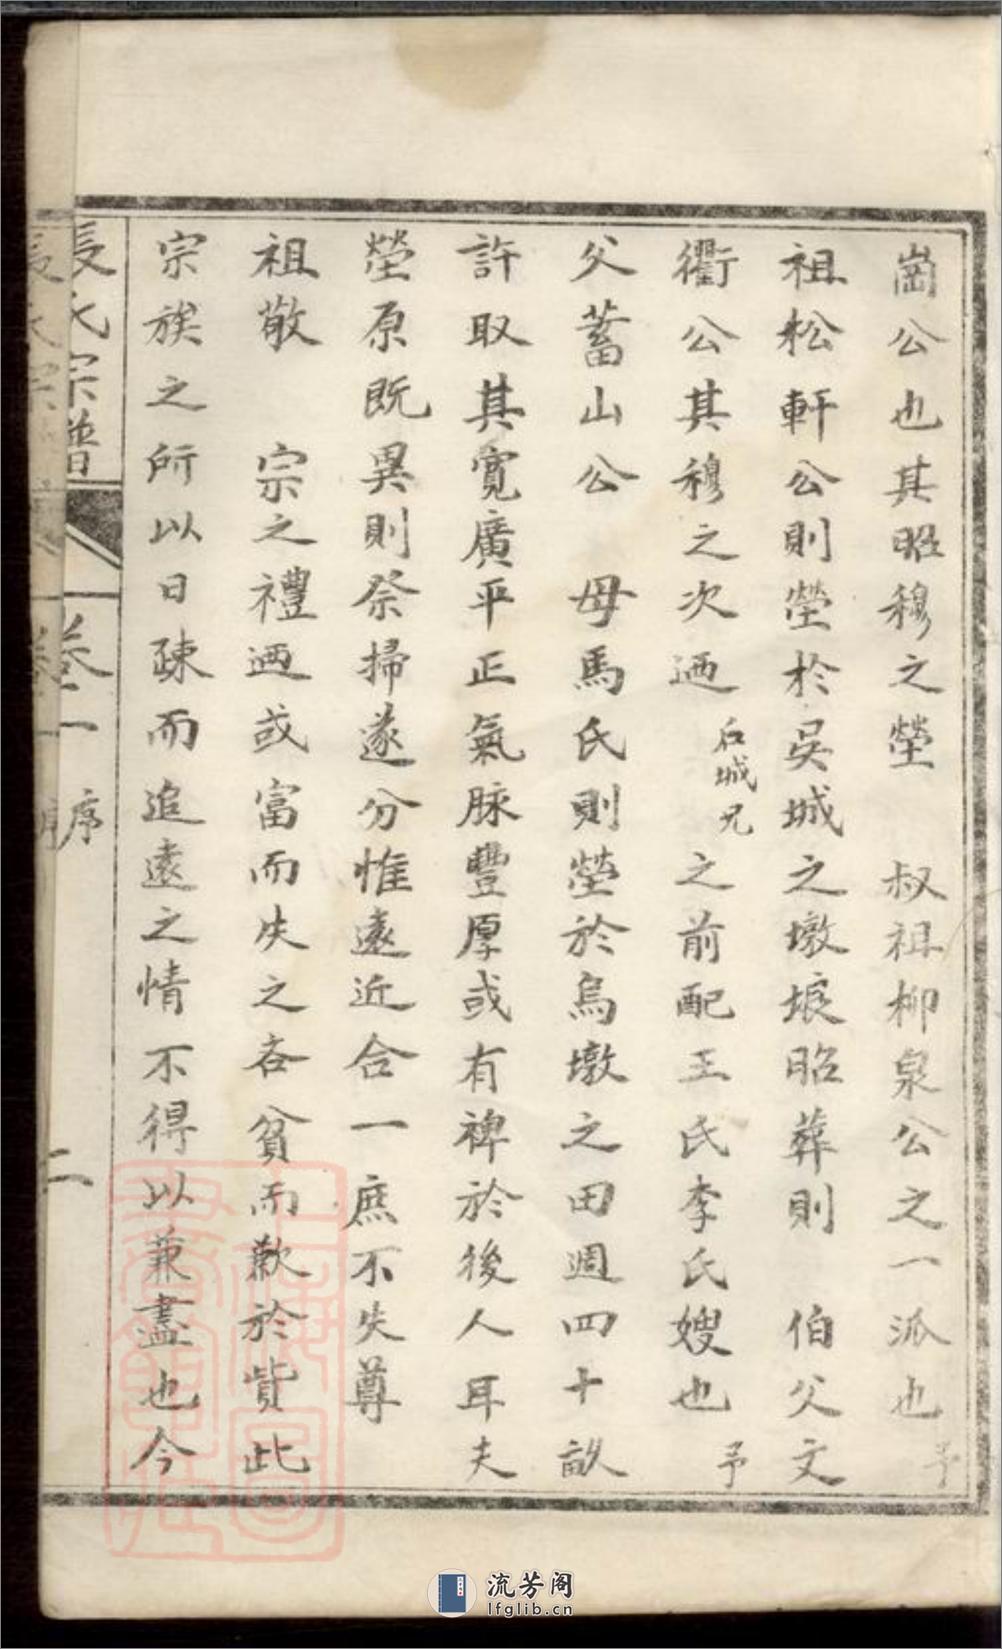 崗公也其昭穆之塋　叔祖柳泉公之一派也予
祖松軒公則塋於吳城之墩埌昭葬則　伯父文
衢公其穆之次迺石城兄之前配王氏李氏嫂也予
父蓄山公　母馬氏則塋於烏墩之田週四十畝
許取其寬廣平正氣脉豐厚或有裨於後人耳夫
塋原既異則祭掃遂分惟遠近合一庶不失尊
祖敬　宗之禮迺或富而失之吝貧而歉於貲此
宗族之所以日疎而追遠之情不得以兼盡也今
長氏宗譜
卷一
序
二
流芳阁
lfglib.cn